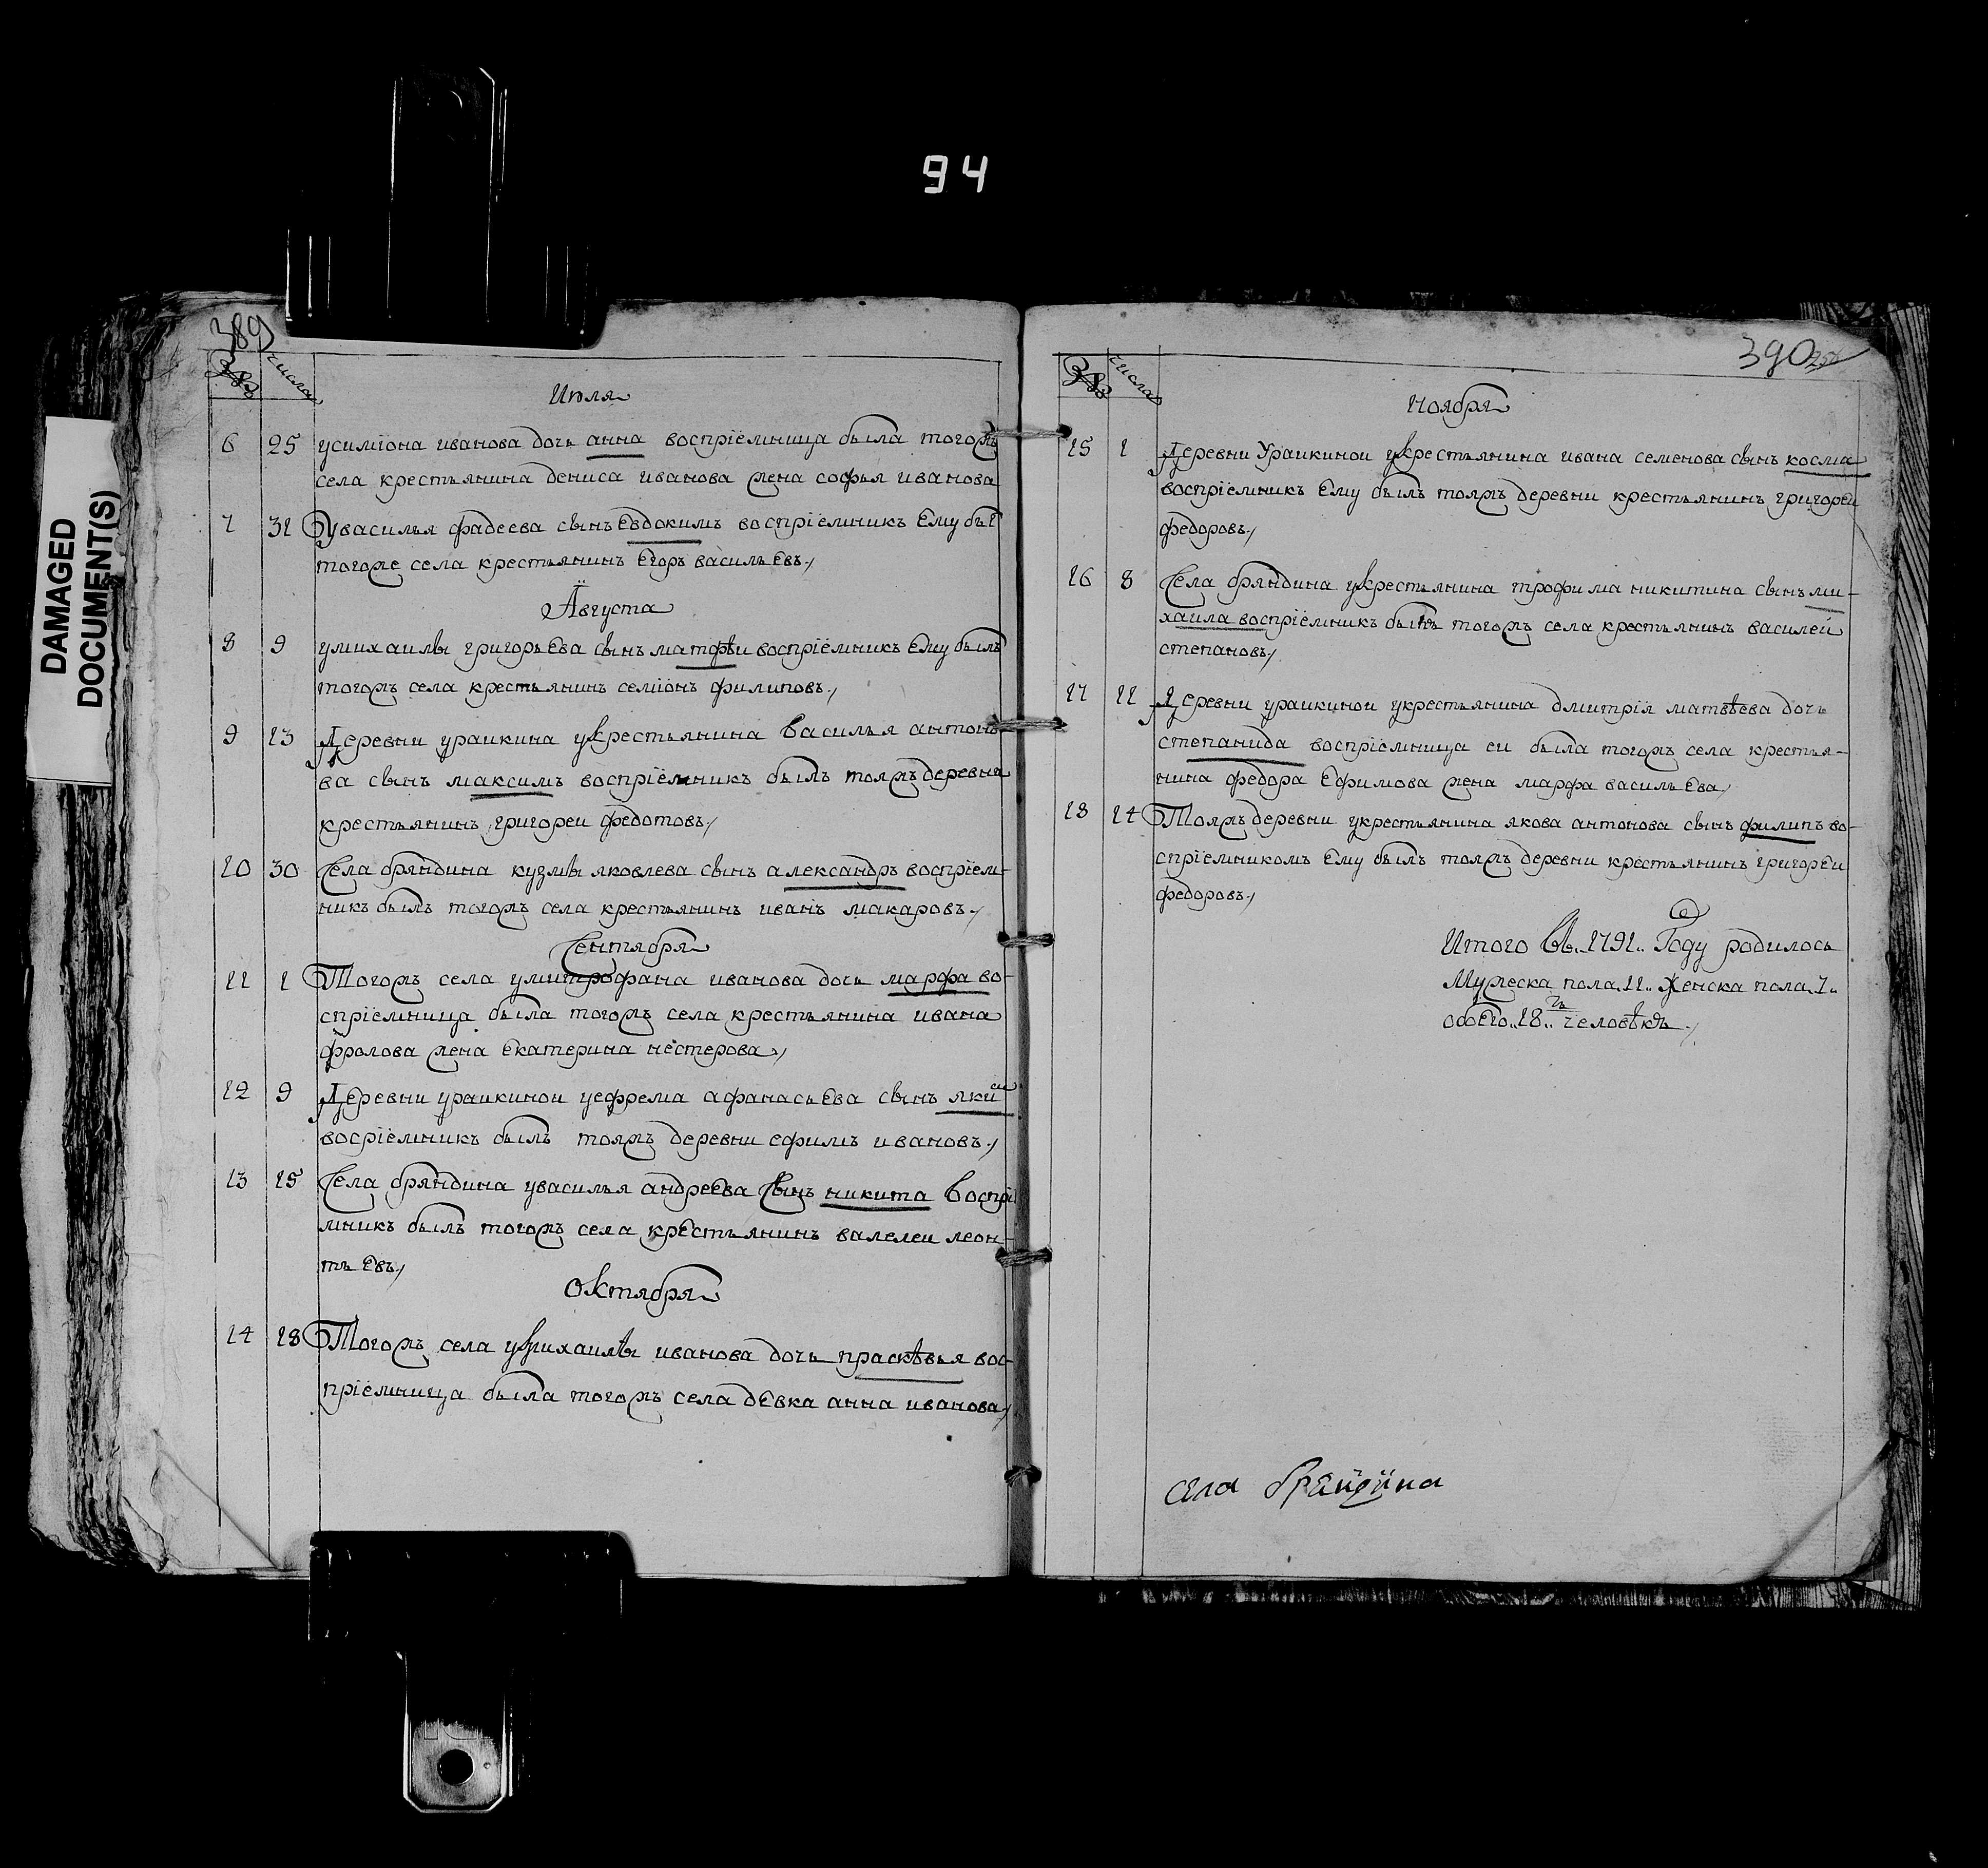 94
DAMAGED
DOCUMENT(S)
389
числа
Июля
6 25 усиміона иванова дочь анна воспріемница была тогожъ
села крестьянина дениса иванова жена софья иванова
7 31 Увасилья фадеева сынъ Евдокимъ воспріемникъ Ему былъ
тогоже села крестьянинъ Егоръ васильЕвъ
Августа
8 9 умихаилы григорьЕва сынъ матфѣи воспріемникъ Ему былъ
тогожъ села крестьянинъ семіонъ филиповъ
9 13 Деревни ураикина укрестьянина василья антоно-
ва сынъ максимъ воспріемникъ былъ тояжъ деревни
крестьянинъ григореи федотовъ
10 30 Села бряндина кузмы яковлева сынъ александръ воспріем-
никъ былъ тогожъ села крестьянинъ иванъ макаровъ
Сентября
11 1 Тогожъ села умитрофана иванова дочь марфа во-
спріемница была тогожъ села крестьянина ивана
фролова жена Екатерина нестерова
12 9 Деревни ураикинои уефрема афанасьЕва сынъ якиⷨ
воспріемникъ былъ тояжъ деревни ефимъ ивановъ
13 15 Села бряндина увасилья андреЕва сынъ никита воспрі
мникъ былъ тогожъ села крЕстьянинъ валелеи леон-
тьЕвъ
Октября
14 18 Тогожъ села умихаилы иванова дочь прасковья вос-
пріемница была тогожъ села дЕвка анна иванова
390
числа
Ноября
15 1 Деревни Ураикинои укрестьянина ивана семенова сынъ косма
воспріемникъ Ему былъ тояжъ деревни крестьянинъ григореи
федоровъ
16 8 Села бряндина укрестьянина трофима никитина сынъ ми-
хаила воспріемникъ былъ тогожъ села крестьянинъ василеи
степановъ
17 11 Деревни ураикинои укрестьянина дмитрія матвѣева дочь
степанида воспріемница еи была тогожъ села крестья-
нина федора Ефимова жена марфа васильЕва
18 14 Тояжъ деревни укрестьянина якова антонова сынъ филипъ во-
спріемникомъ Ему былъ тояжъ деревни крестьянинъ григорЕи
федоровъ
Итого въ 1791 Году родилось
Мужеска пола 11 Женска пола 7
обоЕго 18 человѣкъ
села бряндина